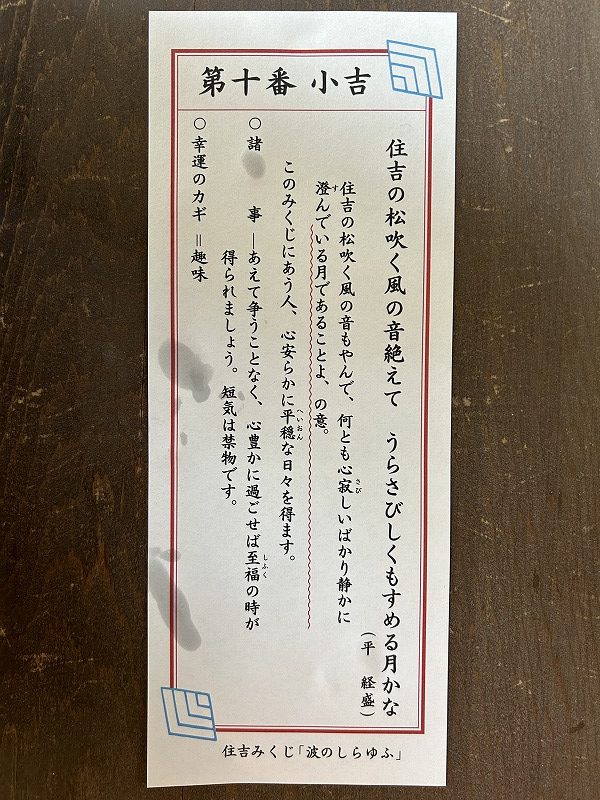 第十番 小吉
住吉の松吹く風の音絶えて　うらさびしくもすめる月かな
（平　経盛）
住吉の松吹く風の音もやんで、何とも心寂しいばかり静かに
澄んでいる月であることよ、の意。
このみくじにあう人、心安らかに平穏な日々を得ます。
○諸　事―あえて争うことなく、心豊かに過ごせば至福の時が
得られましょう。短気は禁物です。
○幸運のカギ＝趣味
住吉みくじ「波のしらゆふ」